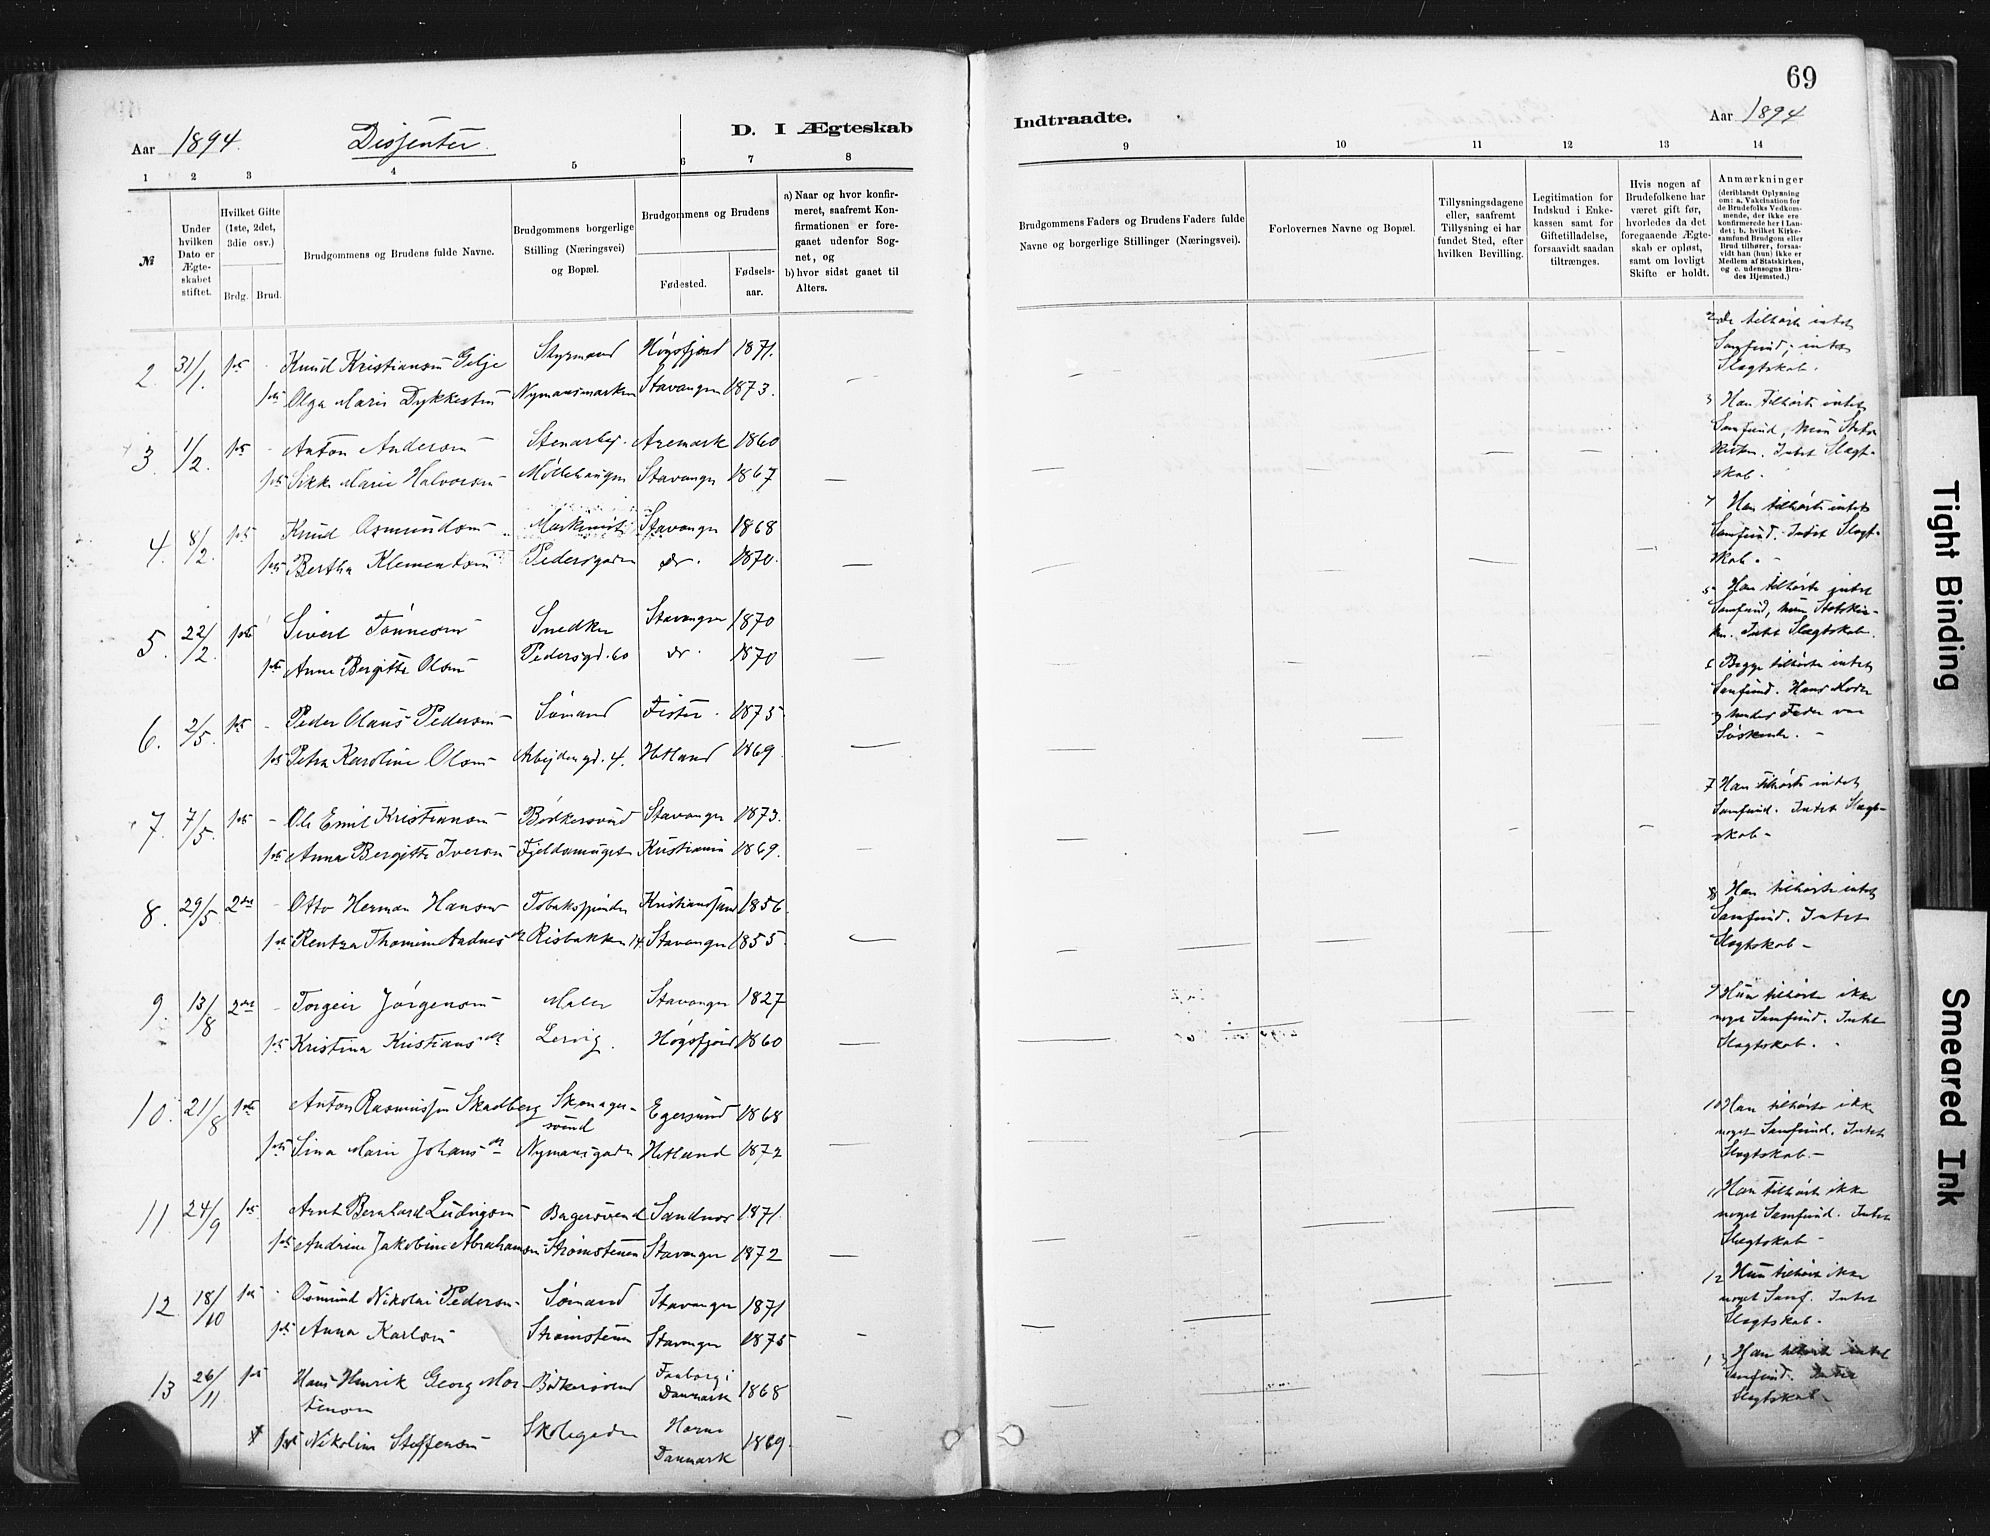 69
Aar 1894.
Dissenter
D. I Ægteskab
Indtraadte.
Aar 1894
1 2 3 4 5 6 7 8
9 10 11 12 13 14
№
Under hvilken Dato er Ægteskabet stiftet.
Hvilket Gifte (1ste, 2det, 3die osv.)
Brdg. Brud.
Brudgommens og Brudens fulde Navne.
Brudgommens borgerlige Stilling (Næringsvei) og Bopæl.
Brudgommens og Brudens
Fødested.
Fødselsaar.
a) Naar og hvor konfirmeret, saafremt Konfirmationen er foregaaet udenfor Sognet, og
b) hvor sidst gaaet til Alters.
Brudgommens Faders og Brudens Faders fulde Navne og borgerlige Stillinger (Næringsvei).
Forlovernes Navne og Bopæl.
Tillysningsdagene eller, saafremt Tillysning ei har fundet Sted, efter hvilken Bevilling.
Legitimation for Indskud i Enkekassen samt for Giftetilladelse, forsaavidt saadan tiltrænges.
Hvis nogen af Brudefolkene har været gift før, hvorledes da det foregaaende Ægteskab er opløst, samt om lovligt Skifte er holdt.
Anmærkninger
(deriblandt Oplysning om: a. Vakcination for de Brudefolks Vedkommende, der ikke ere konfirmerede her i Landet; b. hvilket Kirkesamfund Brudgom eller Brud tilhører, forsaavidt han (hun) ikke er Medlem af Statskirken, og c. udensogns Brudes Hjemsted.)
2. 31/1. 1ste - Knud Kristiansen Gilje Styrmand Høgsfjord 1871.
1ste Olga Marie Dykkesten Nymansmarken Stavanger 1873.
De tilhørte intet
Samfund; intet
Slægtskab.
3. 1/2. 1ste - Anton Andersen Stenarbej. Aremark 1860
1ste Sikke Marie Halvorsen Møllehaugen Stavanger 1867
3 Han tilhørte intet
Samfund, hun Stats
kirken. Intet Slægt-
skab.
4. 8/2. 1ste Knud Osmundsen Stavanger 1868
1ste Bertha Klementsen Pedersgaden do. 1870.
4 Han tilhørte intet
Samfund. Intet Slægt-
skab. -
5. 22/2. 1ste Sivert Tønnesen Snedker Stavanger 1870
1ste Anne Bergitte Olsen Pedersgd. 60 do. 1870
5 Han tilhørte intet
Samfund, hun Statskir-
ken. Intet Slægtskab.
6. 2/5. 1ste - Peder Olaus Pedersen Sømand Fister. 1875
1ste Petra Karoline Olsen Arbejdergd. 4. Hetland 1869.
6 Begge tilhørte intet
Samfund. Hans Moder
og hendes Fader var
Søskende. -
7. 7/5. 1ste - Ole Emil Kristiansen Bødkersvend Stavanger 1873.
1ste Anna Bergitte Iversen Fjeldsmuget Kristiania 1869.
7 Han tilhørte intet
Samfund. Intet Slægt-
skab -
8. 29/5. 2det - Otto Herman Hansen Tobaksspinder Kristianssand 1856.
1ste Rentza Thomine Aadnesdt. Risbakken 14. Stavanger 1855.
8 Han tilhørte intet
Samfund. Intet
Slægtskab -
9. 13/8 2det - Torgeir Jørgensen Maler Stavanger 1827
1ste Kristina Kristiansdt Lervig. Høgsfjord 1860
9 Hun tilhørte ikke
noget Samfund. Intet
Slægtskab.
10. 21/8 1ste Anton Rasmussen Skadberg Skomager-
svend Egersund 1868
1ste Sina Marie Johansdt Nymansgaden Hetland 1872
10 Han tilhørte ikke
noget Samfund. Intet
Slægtskab. -
11. 24/9 1ste. Arnt Bernhard Ludvigsen Bagersvend Sandnes 1871.
1ste Andrine Jakobine Abrahamsen Strømstenen Stavanger 1872
11 Han tilhørte ikke
noget Samfund. Intet
Slægtskab -
12 18/10 1ste Osmund Nikolai Pedersen Sømand Stavanger 1871
1ste Anna Karlsen Strømstenen Stavanger 1875
12 Hun tilhørte ikke
noget Samf. Intet
Slægtskab.
13 26/11 1ste Hans Henrik Georg Mor-
tensen Bødkersvend Faaborg i
Danmark 1868
1ste Nikoline Steffensen Skolegaden Horne
Danmark 1869.
13 Han tilhørte intet
Samfund. Intet
Slægtskab -
Tight Binding
Smeared Ink